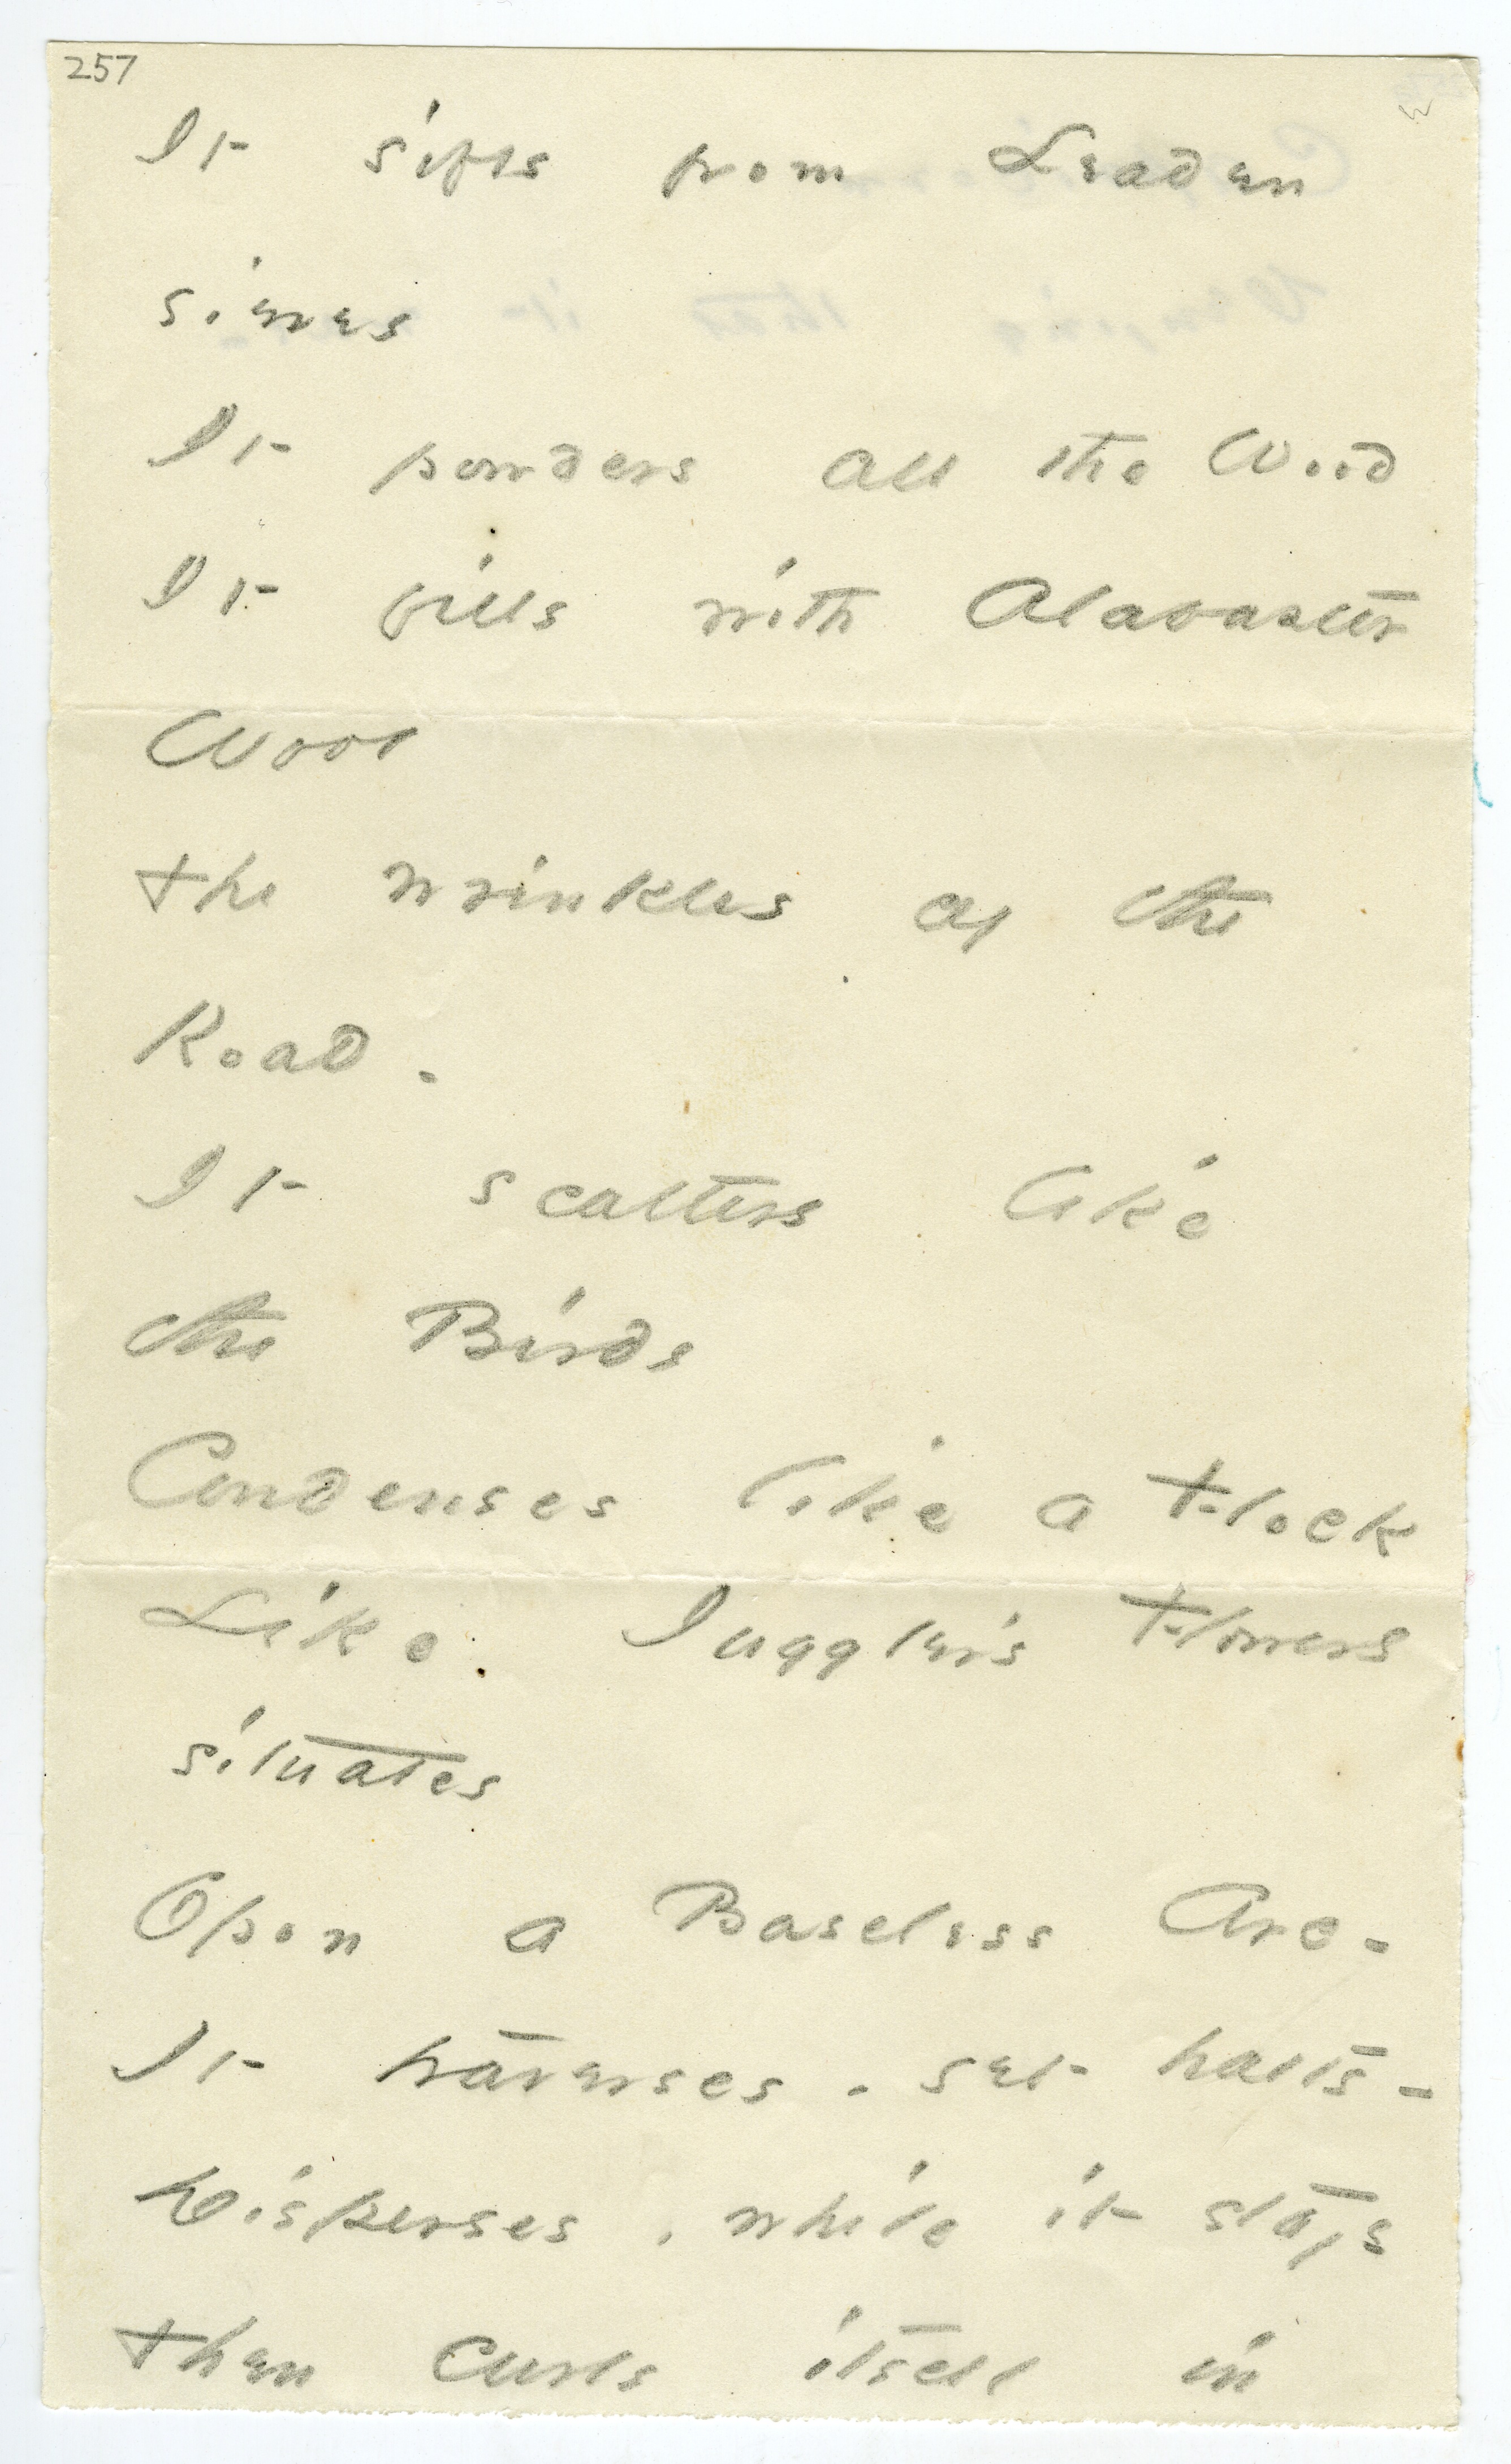 257
It sifts from Leaden
sieves
It powders all the Wood
It fills with Alabaster
Wool
The wrinkles of the
Road -
It scatters like
the Birds
Condenses like a Flock
Like Juggler's Flowers
situates
Opon a Baseless Arc -
It traverses - yet halts -
Disperses, while it stays
Then curls itself in